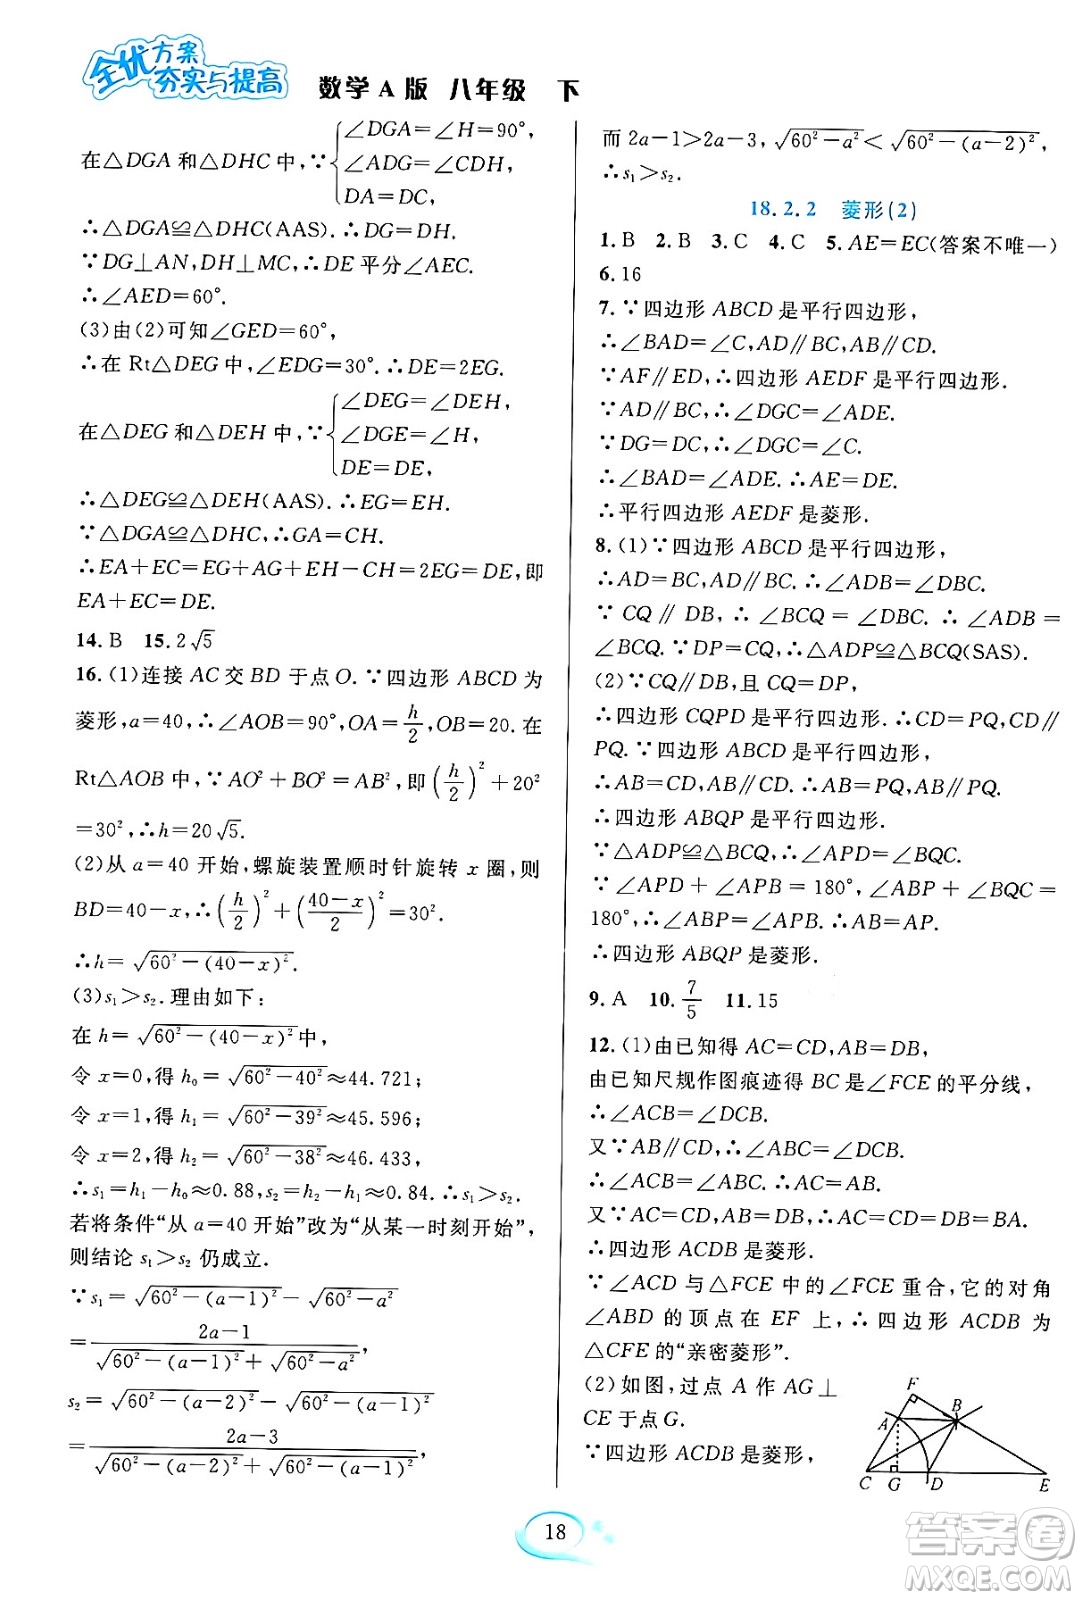 全优方案
夯实与提高
数学A版 八年级 下
在△DGA和△DHC中,∵{∠DGA=∠H=90°,
∠ADG=∠CDH,
DA=DC,
∴△DGA≌△DHC(AAS).∴DG=DH.
∵DG⊥AN,DH⊥MC,∴DE平分∠AEC.
∴∠AED=60°.
(3)由(2)可知∠GED=60°,
∴在Rt△DEG中,∠EDG=30°.∴DE=2EG.
在△DEG和△DEH中,∵{∠DEG=∠DEH,
∠DGE=∠H,
DE=DE,
∴△DEG≌△DEH(AAS).∴EG=EH.
∵△DGA≌△DHC,∴GA=CH.
∴EA+EC=EG+AG+EH-CH=2EG=DE,即
EA+EC=DE.
14.B 15.2√5
16.(1)连接AC交BD于点O.∵四边形ABCD为
菱形,a=40,∴∠AOB=90°,OA=h/2,OB=20.在
Rt△AOB中,∵AO²+BO²=AB²,即(h/2)²+20²
=30²,∴h=20√5.
(2)从a=40开始,螺旋装置顺时针旋转x圈,则
BD=40-x,∴(h/2)²+((40-x)/2)²=30².
∴h=√(60²-(40-x)²).
(3)s₁>s₂.理由如下:
在h=√(60²-(40-x)²)中,
令x=0,得h₀=√(60²-40²)≈44.721;
令x=1,得h₁=√(60²-39²)≈45.596;
令x=2,得h₂=√(60²-38²)≈46.433,
∴s₁=h₁-h₀≈0.88,s₂=h₂-h₁≈0.84.∴s₁>s₂.
若将条件“从a=40开始”改为“从某一时刻开始”,
则结论s₁>s₂仍成立.
∵s₁=√(60²-(a-1)²)-√(60²-a²)
=(2a-1)/(√(60²-(a-1)²)+√(60²-a²)),
s₂=√(60²-(a-2)²)-√(60²-(a-1)²)
=(2a-3)/(√(60²-(a-2)²)+√(60²-(a-1)²)),
而2a-1>2a-3,√(60²-a²)<√(60²-(a-2)²),
∴s₁>s₂.
18.2.2 菱形(2)
1.B 2.B 3.C 4.C 5.AE=EC(答案不唯一)
6.16
7.∵四边形ABCD是平行四边形,
∴∠BAD=∠C,AD∥BC,AB∥CD.
∵AF∥ED,∴四边形AEDF是平行四边形.
∵AD∥BC,∴∠DGC=∠ADE.
∵DG=DC,∴∠DGC=∠C.
∴∠BAD=∠ADE.∴AE=DE.
∴平行四边形AEDF是菱形.
8.(1)∵四边形ABCD是平行四边形,
∴AD=BC,AD∥BC.∴∠ADB=∠DBC.
∵CQ∥DB,∴∠BCQ=∠DBC.∴∠ADB=
∠BCQ.∵DP=CQ,∴△ADP≌△BCQ(SAS).
(2)∵CQ∥DB,且CQ=DP,
∴四边形CQPD是平行四边形.∴CD=PQ,CD∥
PQ.∵四边形ABCD是平行四边形,
∴AB=CD,AB∥CD.∴AB=PQ,AB∥PQ.
∴四边形ABQP是平行四边形.
∵△ADP≌△BCQ,∴∠APD=∠BQC.
∵∠APD+∠APB=180°,∠ABP+∠BQC=
180°,∴∠ABP=∠APB.∴AB=AP.
∴四边形ABQP是菱形.
9.A 10.7/5 11.15
12.(1)由已知得AC=CD,AB=DB,
由已知尺规作图痕迹得BC是∠FCE的平分线,
∴∠ACB=∠DCB.
又∵AB∥CD,∴∠ABC=∠DCB.
∴∠ACB=∠ABC.∴AC=AB.
又∵AC=CD,AB=DB,∴AC=CD=DB=BA.
∴四边形ACDB是菱形.
∵∠ACD与△FCE中的∠FCE重合,它的对角
∠ABD的顶点在EF上,∴四边形ACDB为
△CFE的“亲密菱形”.
(2)如图,过点A作AG⊥
CE于点G.
∵四边形ACDB是菱形,
F
A
B
C
G
D
E
18
答案卷
MXQE.COM